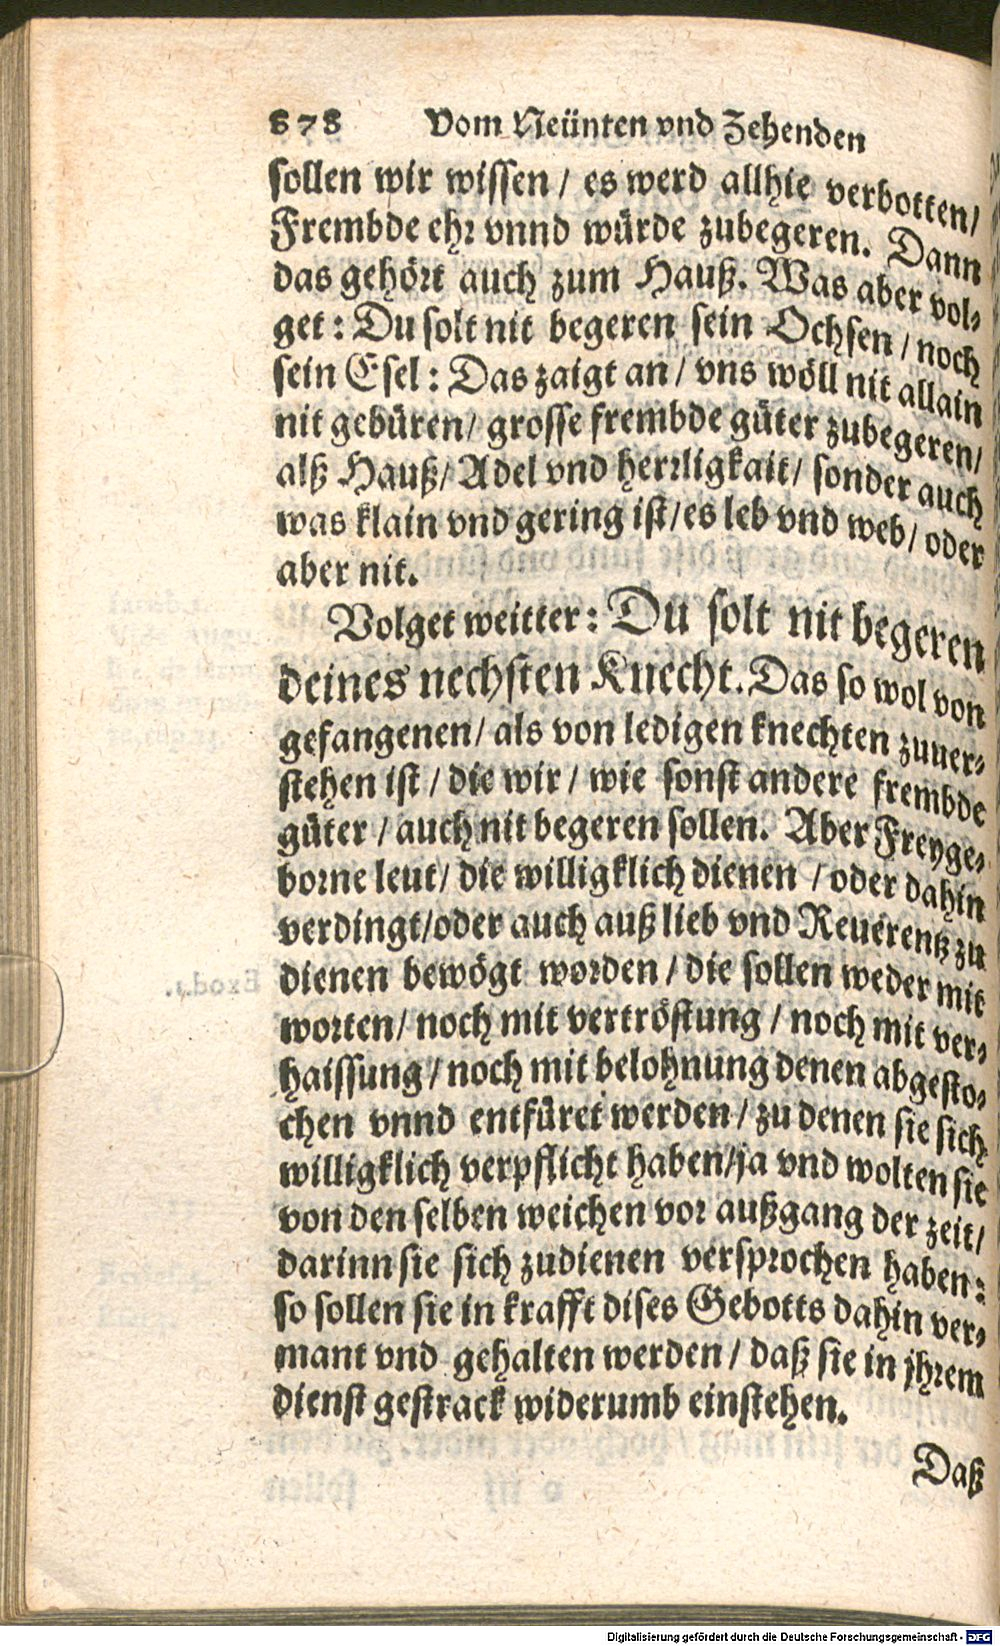 878 Vom Neünten vnd Zehenden
sollen wir wissen / es werd allhie verbotten/
Frembde ehr vnnd würde zubegeren. Dann
das gehört auch zum Hauß. Was aber vol-
get: Du solt nit begeren sein Ochsen / noch
sein Esel: Das zaigt an / vns wöll nit allain
nit gebüren/ grosse frembde güter zubegeren/
alß Hauß/ Adel vnd herrligkait/ sonder auch
was klain vnd gering ist/es leb vnd web/ oder
aber nit.
Volget weitter: Du solt nit begeren
deines nechsten Knecht. Das so wol von
gefangenen/ als von ledigen knechten zuuer-
stehen ist / die wir / wie sonst andere frembde
güter / auch nit begeren sollen. Aber Freyge-
borne leut/ die willigklich dienen / oder dahin
verdingt/oder auch auß lieb vnd Reuerentz zu
dienen bewögt worden / die sollen weder mit
worten/ noch mit vertröstung / noch mit ver-
haissung / noch mit belohnung denen abgesto-
chen vnnd entfüret werden / zu denen sie sich
willigklich verpflicht haben/ja vnd wolten sie
von den selben weichen vor außgang der zeit/
darinn sie sich zudienen versprochen haben:
so sollen sie in krafft dises Gebotts dahin ver-
mant vnd gehalten werden / daß sie in jhrem
dienst gestrack widerumb einstehen.
Daß
Digitalisierung gefördert durch die Deutsche Forschungsgemeinschaft - DFG